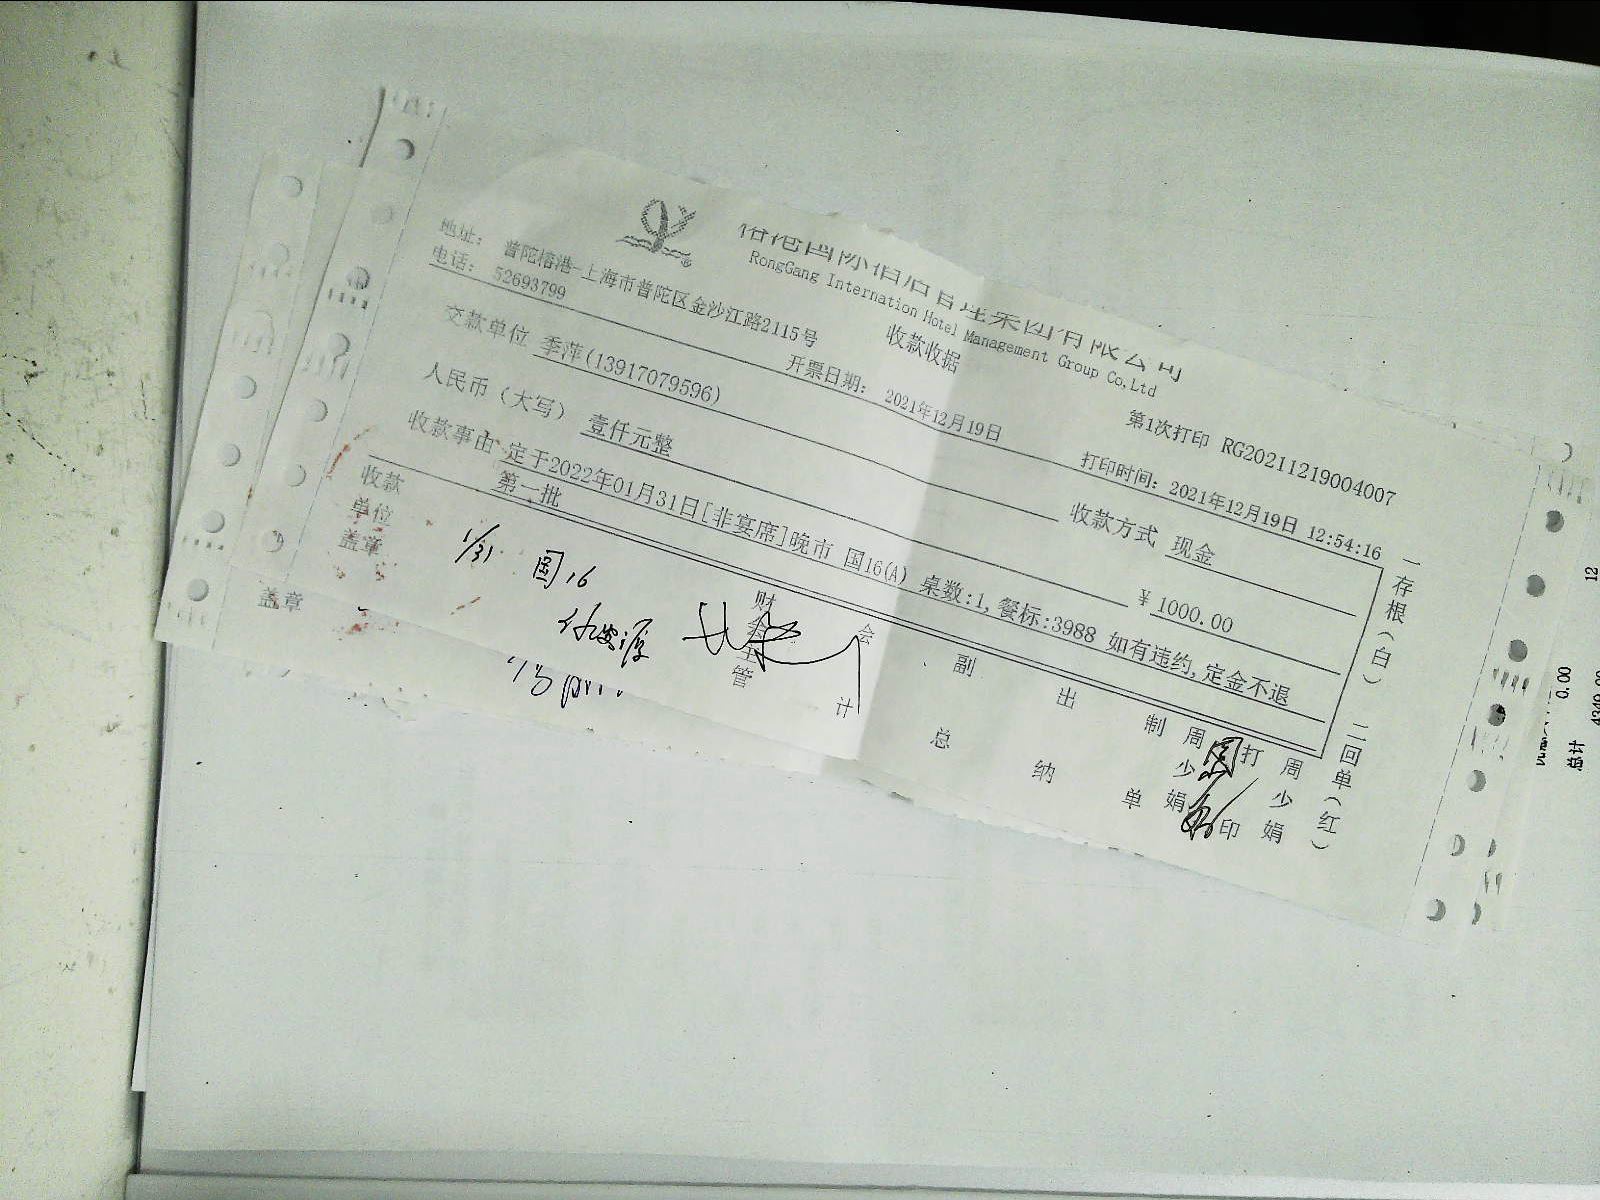 RongGang Internation Hotel Management Group Co.Ltd
收款收据
地址： 普陀榕港-上海市普陀区金沙江路2115号
电话： 52693799
开票日期： 2021年12月19日
第1次打印 RG202112190040​07
打印时间：2021年12月19日 12:54:16
交款单位 季萍(13917079596)
收款方式 现金
人民币（大写） 壹仟元整
￥1000.00
收款事由 定于2022年01月31日[非宴席]晚市 国16(A) 桌数:1,餐标:3988 如有违约,定金不退
第一批
一存根(白) 二回单(红)
收款单位盖章
财会主管
会计
副总
出纳
制单 周少娟
打印 周少娟
1/31 国16
盖章
12
0.00
总计